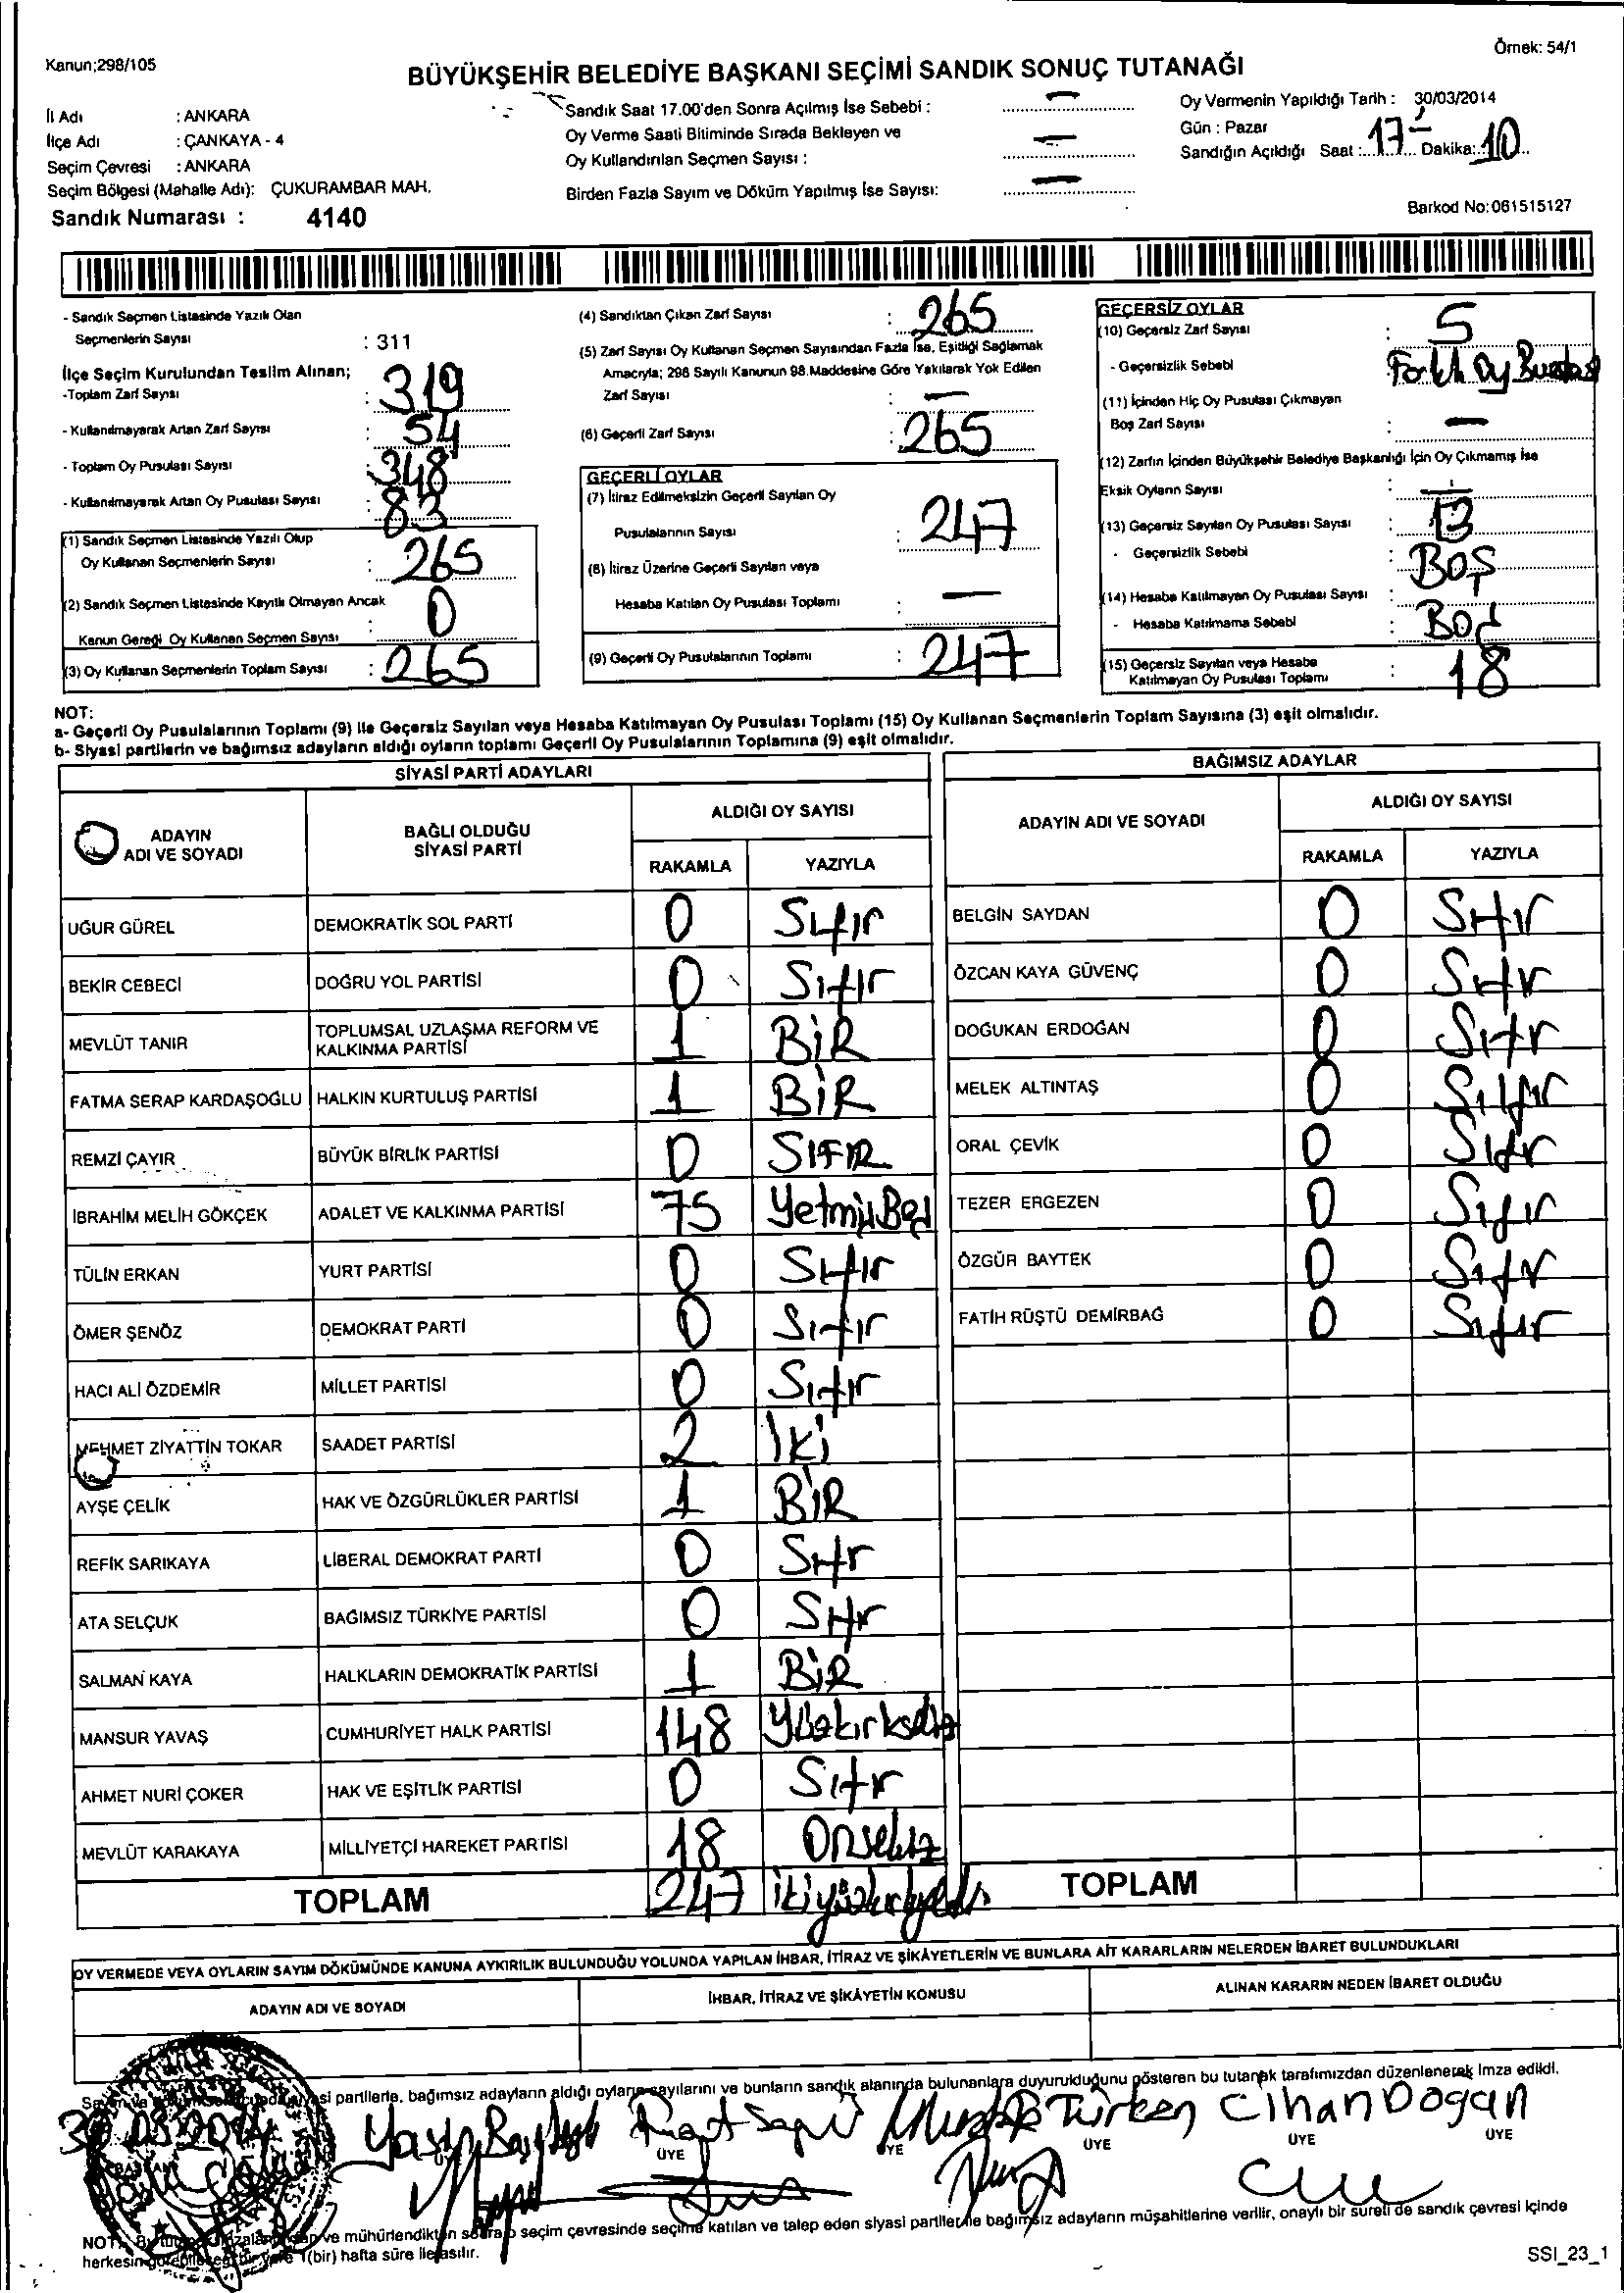 Kanun;298/105
Örnek: 54/1
BÜYÜKŞEHİR BELEDİYE BAŞKANI SEÇİMİ SANDIK SONUÇ TUTANAĞI
İl Adı : ANKARA
İlçe Adı : ÇANKAYA - 4
Seçim Çevresi : ANKARA
Seçim Bölgesi (Mahalle Adı): ÇUKURAMBAR MAH.
Sandık Numarası : 4140
Sandık Saat 17.00'den Sonra Açılmış İse Sebebi : —
Oy Verme Saati Bitiminde Sırada Bekleyen ve
Oy Kullandırılan Seçmen Sayısı : —
Birden Fazla Sayım ve Döküm Yapılmış İse Sayısı: —
Oy Vermenin Yapıldığı Tarih : 30/03/2014
Gün : Pazar
Sandığın Açıldığı Saat : 17 Dakika: 10
Barkod No:061515127
- Sandık Seçmen Listesinde Yazılı Olan
Seçmenlerin Sayısı : 311
İlçe Seçim Kurulundan Teslim Alınan;
-Toplam Zarf Sayısı : 319
- Kullanılmayarak Artan Zarf Sayısı : 54
- Toplam Oy Pusulası Sayısı : 348
- Kullanılmayarak Artan Oy Pusulası Sayısı : 83
(1) Sandık Seçmen Listesinde Yazılı Olup
Oy Kullanan Seçmenlerin Sayısı : 265
(2) Sandık Seçmen Listesinde Kayıtlı Olmayan Ancak
Kanun Gereği Oy Kullanan Seçmen Sayısı : 0
(3) Oy Kullanan Seçmenlerin Toplam Sayısı : 265
(4) Sandıktan Çıkan Zarf Sayısı : 265
(5) Zarf Sayısı Oy Kullanan Seçmen Sayısından Fazla İse, Eşitliği Sağlamak
Amacıyla; 298 Sayılı Kanunun 98.Maddesine Göre Yakılarak Yok Edilen
Zarf Sayısı : —
(6) Geçerli Zarf Sayısı : 265
GEÇERLİ OYLAR
(7) İtiraz Edilmeksizin Geçerli Sayılan Oy
Pusulalarının Sayısı : 247
(8) İtiraz Üzerine Geçerli Sayılan veya
Hesaba Katılan Oy Pusulası Toplamı : —
(9) Geçerli Oy Pusulalarının Toplamı : 247
GEÇERSİZ OYLAR
(10) Geçersiz Zarf Sayısı : 5
- Geçersizlik Sebebi : Farklı Oy
(11) İçinden Hiç Oy Pusulası Çıkmayan
Boş Zarf Sayısı : —
(12) Zarfın İçinden Büyükşehir Belediye Başkanlığı İçin Oy Çıkmamış İse
Eksik Oyların Sayısı : —
(13) Geçersiz Sayılan Oy Pusulası Sayısı : 13
- Geçersizlik Sebebi : BOŞ
(14) Hesaba Katılmayan Oy Pusulası Sayısı :
- Hesaba Katılmama Sebebi : BOŞ
(15) Geçersiz Sayılan veya Hesaba
Katılmayan Oy Pusulası Toplamı : 18
NOT:
a- Geçerli Oy Pusulalarının Toplamı (9) ile Geçersiz Sayılan veya Hesaba Katılmayan Oy Pusulası Toplamı (15) Oy Kullanan Seçmenlerin Toplam Sayısına (3) eşit olmalıdır.
b- Siyasi partilerin ve bağımsız adayların aldığı oyların toplamı Geçerli Oy Pusulalarının Toplamına (9) eşit olmalıdır.
SİYASİ PARTİ ADAYLARI
ADAYIN ADI VE SOYADI
BAĞLI OLDUĞU SİYASİ PARTİ
ALDIĞI OY SAYISI
RAKAMLA YAZIYLA
UĞUR GÜREL DEMOKRATİK SOL PARTİ 0 Sıfır
BEKİR CEBECİ DOĞRU YOL PARTİSİ 0 Sıfır
MEVLÜT TANIR TOPLUMSAL UZLAŞMA REFORM VE KALKINMA PARTİSİ 1 BİR
FATMA SERAP KARDAŞOĞLU HALKIN KURTULUŞ PARTİSİ 1 BİR
REMZİ ÇAYIR BÜYÜK BİRLİK PARTİSİ 0 SIFIR
İBRAHİM MELİH GÖKÇEK ADALET VE KALKINMA PARTİSİ 75 YetmişBeş
TÜLİN ERKAN YURT PARTİSİ 0 Sıfır
ÖMER ŞENÖZ DEMOKRAT PARTİ 0 Sıfır
HACI ALİ ÖZDEMİR MİLLET PARTİSİ 0 Sıfır
MEHMET ZİYATTİN TOKAR SAADET PARTİSİ 2 İki
AYŞE ÇELİK HAK VE ÖZGÜRLÜKLER PARTİSİ 1 BİR
REFİK SARIKAYA LİBERAL DEMOKRAT PARTİ 0 Sıfır
ATA SELÇUK BAĞIMSIZ TÜRKİYE PARTİSİ 0 Sıfır
SALMAN KAYA HALKLARIN DEMOKRATİK PARTİSİ 1 BİR
MANSUR YAVAŞ CUMHURİYET HALK PARTİSİ 148 Yüzkırksekiz
AHMET NURİ ÇOKER HAK VE EŞİTLİK PARTİSİ 0 Sıfır
MEVLÜT KARAKAYA MİLLİYETÇİ HAREKET PARTİSİ 18 Onsekiz
TOPLAM 247 ikiyüzkırkyedi
BAĞIMSIZ ADAYLAR
ADAYIN ADI VE SOYADI
ALDIĞI OY SAYISI
RAKAMLA YAZIYLA
BELGİN SAYDAN 0 Sıfır
ÖZCAN KAYA GÜVENÇ 0 Sıfır
DOĞUKAN ERDOĞAN 0 Sıfır
MELEK ALTINTAŞ 0 Sıfır
ORAL ÇEVİK 0 Sıfır
TEZER ERGEZEN 0 Sıfır
ÖZGÜR BAYTEK 0 Sıfır
FATİH RÜŞTÜ DEMİRBAĞ 0 Sıfır
TOPLAM
OY VERMEDE VEYA OYLARIN SAYIM DÖKÜMÜNDE KANUNA AYKIRILIK BULUNDUĞU YOLUNDA YAPILAN İHBAR, İTİRAZ VE ŞİKÂYETLERİN VE BUNLARA AİT KARARLARIN NELERDEN İBARET BULUNDUKLARI
ADAYIN ADI VE SOYADI
İHBAR, İTİRAZ VE ŞİKÂYETİN KONUSU
ALINAN KARARIN NEDEN İBARET OLDUĞU
partilerle, bağımsız adayların aldığı oyların sayılarını ve bunların sandık alanında bulunanlara duyurulduğunu gösteren bu tutanak tarafımızdan düzenlenerek imza edildi.
Türken Cihan Dogan
ÜYE ÜYE ÜYE ÜYE ÜYE
ve mühürlendikten sonra o seçim çevresinde seçime katılan ve talep eden siyasi partiler ile bağımsız adayların müşahitlerine verilir, onaylı bir sureti de sandık çevresi içinde
herkesin 1(bir) hafta süre ile asılır.
SSI_23_1